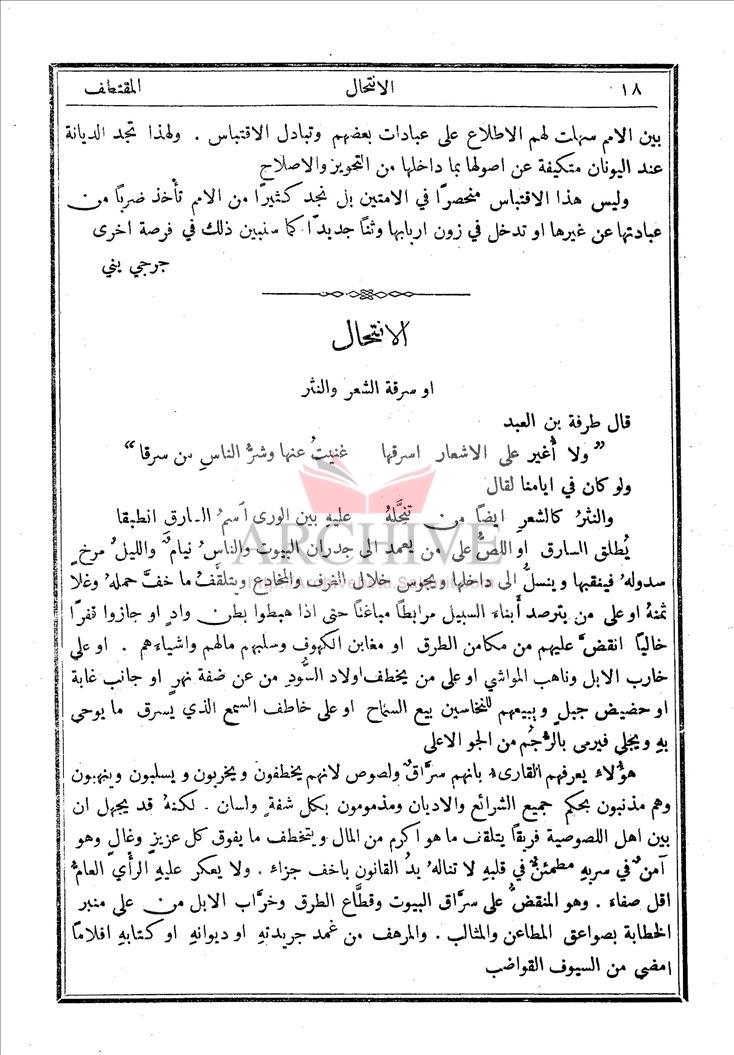 ١٨ الانتحال المقتطف
بين الامم سهلت لهم الاطلاع على عبادات بعضهم وتبادل الاقتباس . ولهذا تجد الديانة
عند اليونان متكيفة عن اصولها بما داخلها من التجويز والاصلاح
وليس هذا الاقتباس منحصرًا في الامتين بل نجد كثيرًا من الامم تأخذ ضربًا من
عبادتها عن غيرها او تدخل في زون اربابها وثنًا جديدًا كما سنبين ذلك في فرصة اخرى
جرجي يني
الانتحال
او سرقة الشعر والنثر
قال طرفة بن العبد
” ولا أُغير على الاشعار اسرقها غنيتُ عنها وشرُّ الناسِ من سرقا “
ولو كان في ايامنا لقال
والنثرُ كالشعرِ ايضًا من تنحَّلهُ عليهِ بين الورى اسمُ السارق انطبقا
ARCHIVE
يُطلق السارق او اللصُّ على من يعمد الى جدران البيوت والناسُ نيامٌ والليلُ مرخٍ
سدولهُ فينقبها وينسلُّ الى داخلها ويجوس خلال الغرف والمخادع ويتلقَّفُ ما خفَّ حملهُ وغلا
ثمنهُ او على من يترصد أَبناء السبيل مرابطًا مباغتًا حتى اذا هبطوا بطن وادٍ او جازوا قفرًا
خاليًا انقضَّ عليهم من مكامن الطرق او مغابن الكهوف وسلبهم مالهم واشياءهم . او على
خارب الابل وناهب المواشي او على من يخطف اولاد السُّودِ من عن ضفة نهرٍ او جانب غابة
او حضيض جبلٍ ويبيعهم للنخاسين بيع السماح او على خاطف السمع الذي يَسرق ما يوحي
بهِ ويجلي فيرمى بالرُّجُم من الجو الاعلى
هؤُلاءِ يعرفهم القارىء بانهم سرَّاقٌ ولصوص لانهم يخطفون ويخربون ويسلبون وينهبون
وهم مذنبون بحكم جميع الشرائع والاديان ومذمومون بكل شفةٍ ولسان . لكنهُ قد يجهل ان
بين اهل اللصوصية فريقًا يتلقف ما هو اكرم من المال ويتخطف ما يفوق كل عزيزٍ وغالٍ وهو
آمنٌ في سربهِ مطمئنٌّ في قلبهِ لا تنالهُ يدُ القانون باخف جزاء . ولا يعكر عليهِ الرأي العامُّ
اقل صفاء . وهو المنقضُّ على سرَّاق البيوت وقطَّاع الطرق وخرَّاب الابل من على منبر
الخطابة بصواعق المطاعن والمثالب . والمرهف من غمد جريدتهِ او ديوانهِ او كتابهِ اقلامًا
امضى من السيوف القواضب